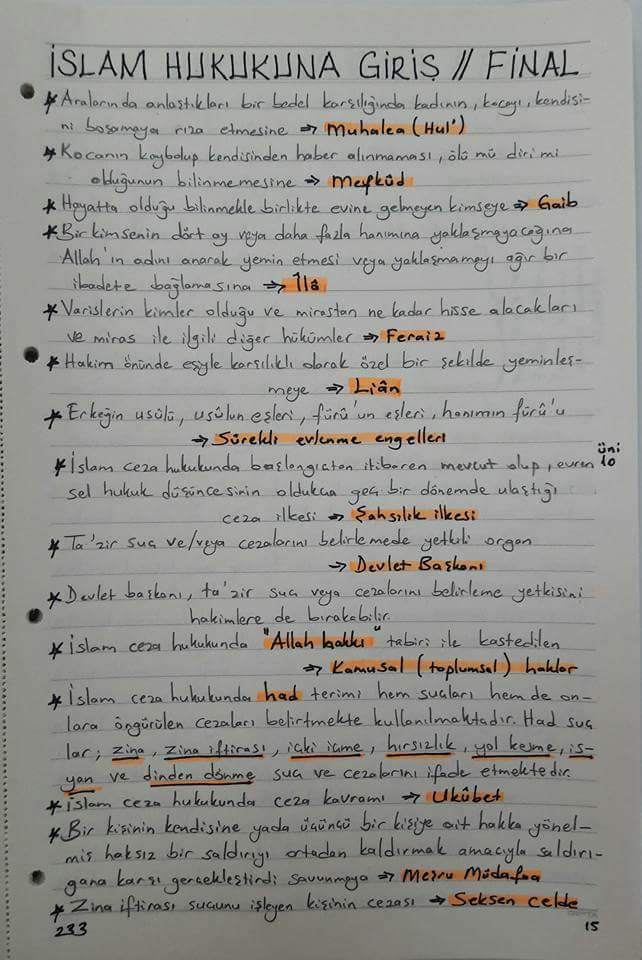 İSLAM HUKUKUNA GİRİŞ // FİNAL
* Aralarında anlaştıkları bir bedel karşılığında kadının, kocayı, kendisi-
ni boşamaya rıza etmesine → Muhalea (Hul')
* Kocanın kaybolup kendisinden haber alınmaması, ölü mü diri mi
olduğunun bilinmemesine → Mefkûd
* Hayatta olduğu bilinmekle birlikte evine gelmeyen kimseye → Gaib
* Bir kimsenin dört ay veya daha fazla hanımına yaklaşmayacağına
Allah'ın adını anarak yemin etmesi veya yaklaşmamayı ağır bir
ibadete bağlamasına → Îlâ
* Varislerin kimler olduğu ve mirastan ne kadar hisse alacakları
ve miras ile ilgili diğer hükümler → Feraiz
* Hakim önünde eşiyle karşılıklı olarak özel bir şekilde yeminleş-
meye → Liân
* Erkeğin usûlü, usûlun eşleri, fürû'un eşleri, hanımın fürû'u
→ Sürekli evlenme engelleri
* İslam ceza hukukunda başlangıcatan itibaren mevcut olup, evren
sel hukuk düşüncesinin oldukca geç bir dönemde ulaştığı
ceza ilkesi → Şahsîlik ilkesi
üni
10
* Ta'zir suç ve/veya cezalarını belirlemede yetkili organ
→ Devlet Başkanı
* Devlet başkanı, ta'zir suç veya cezalarını belirleme yetkisini
hakimlere de bırakabilir.
* İslam ceza hukukunda "Allah hakkı" tabiri ile kastedilen
→ Kamusal (toplumsal) haklar
* İslam ceza hukukunda had terimi hem suçları hem de on-
lara öngürülen cezaları belirtmekte kullanılmaktadır. Had suç
lar; zina, zina iftirası, içki içme, hırsızlık, yol kesme, is-
yan ve dinden dönme suç ve cezalarını ifade etmektedir.
* İslam ceza hukukunda ceza kavramı → Ukûbet
* Bir kişinin kendisine yada üçüncü bir kişiye ait hakka yönel-
miş haksız bir saldırıyı ortadan kaldırmak amacıyla saldırı-
gana karşı gerçekleştirdi savunmaya → Meşru Müdafaa
* Zina iftirası suçunu işleyen kişinin cezası → Seksen Celde
233
15